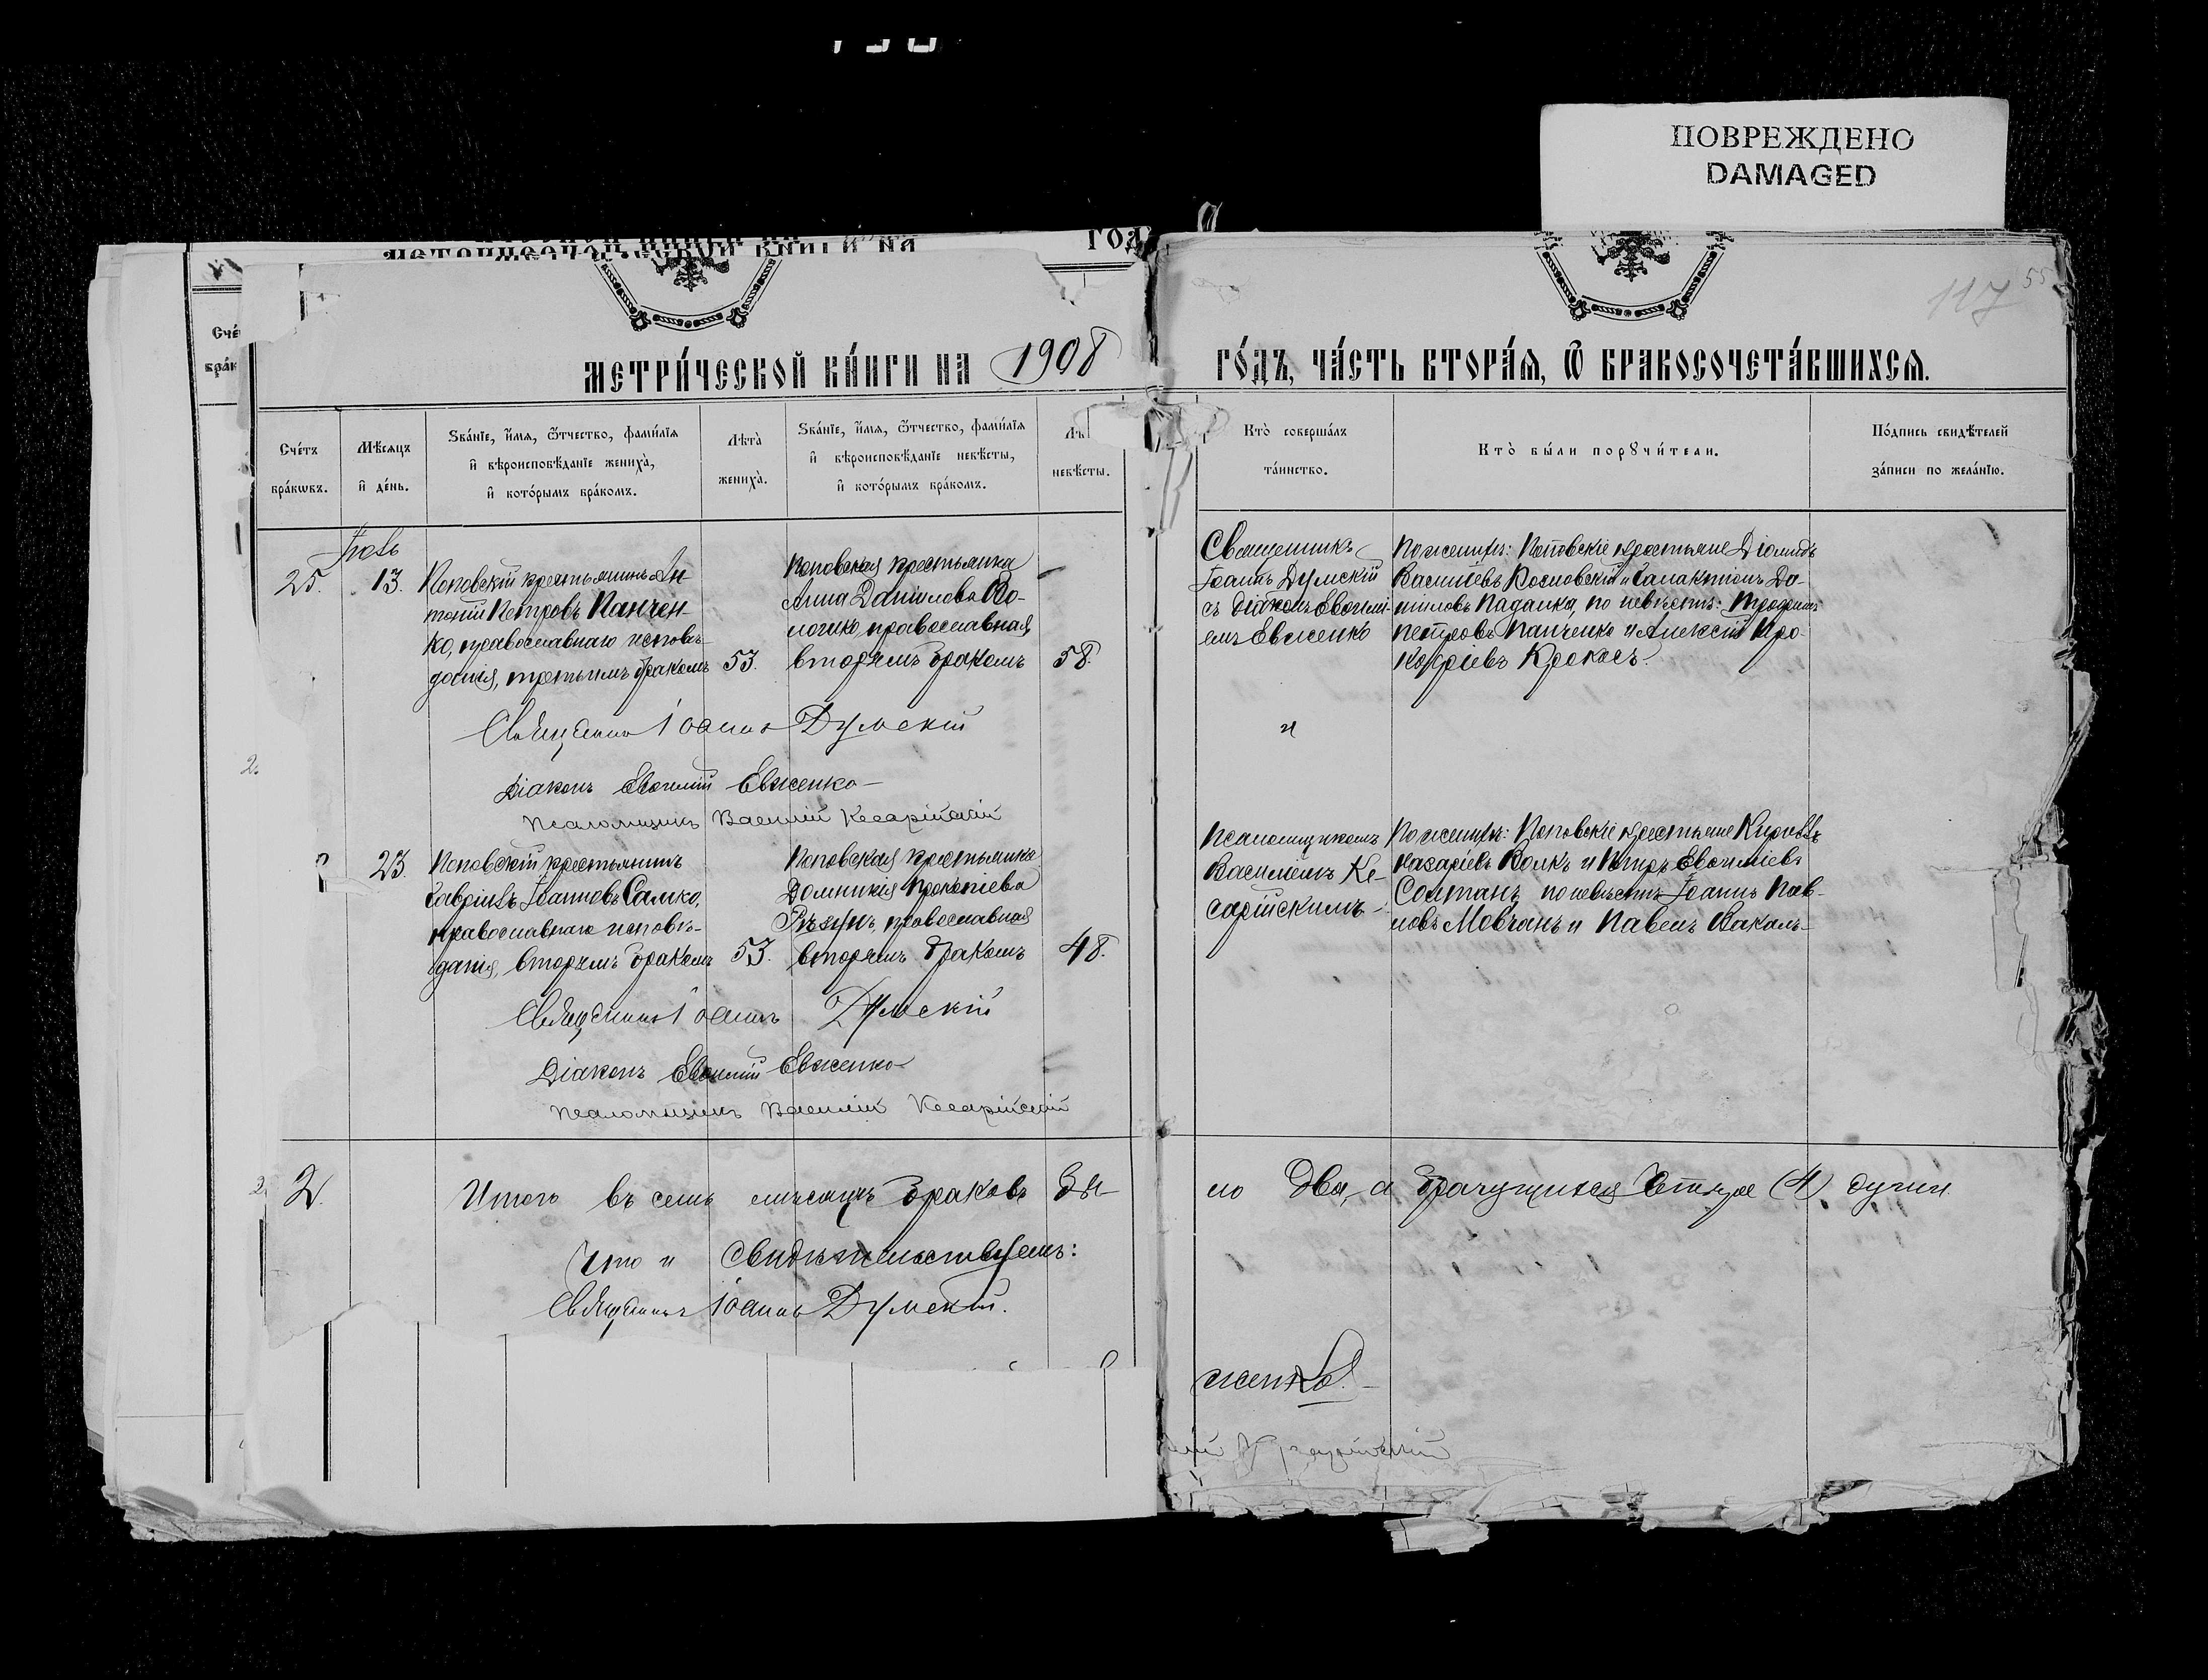 ПОВРЕЖДЕНО
DAMAGED
117
55
МЕТРИ́ЧЕСКОЙ КНИ́ГИ НА 1908
ГО́ДЪ, ЧА́СТЬ ВТОРА́Я, Ѿ БРАКОСОЧЕТА́ВШИХСЯ.
Сче́тъ
бра́кωвъ.
Мѣ́сяцъ
и҆ де́нь.
Ѕва́нїе, и҆́мя, ѻ҆́тчество, фами́лїя
и҆ вѣроисповѣ́данїе жениха̀,
и҆ кото́рымъ бра́комъ.
Лѣта̀
жениха̀.
Ѕва́нїе, и҆́мя, ѻ҆́тчество, фами́лїя
и҆ вѣроисповѣ́данїе невѣ́сты,
и҆ кото́рымъ бра́комъ.
невѣ́сты.
Кто̀ соверша́лъ
та́инство.
Кто̀ бы́ли порꙋчи́тели.
По́дпись свидѣ́телей
за́писи по жела́нїю.
25.
13.
Поповскій крестьянинъ Ан-
тоній Петровъ Панчен-
ко, православнаго исповѣ-
данія, третьимъ бракомъ
53.
Поповская крестьянка
Анна Даніилова Во-
логико, православная,
вторымъ бракомъ
58.
Священникъ
Іоаннъ Думскій
съ діакономъ Евѳимі-
емъ Евженко
По женихѣ: Поповскіе крестьяне Діомидъ
Василіевъ Косповскій и Галактіонъ Да-
ніиловъ Падалка, по невѣстѣ: Трофимъ
Петровъ Панченко и Алексій Про-
копіевъ Крокосъ.
Священникъ Іоаннъ Думскій
и
Діаконъ Евѳимій Евженко
Псаломщикъ Василій Кесарійскій
23.
Поповскій крестьянинъ
Гавріилъ Іоанновъ Самко,
православнаго исповѣ-
данія, вторымъ бракомъ
53.
Поповская крестьянка
Домникія Прокопіева
Рѣзунъ, православная
вторымъ бракомъ
48.
Псаломщикомъ
Василіемъ Ке-
сарійскимъ
По женихѣ: Поповскіе крестьяне Кириллъ
Назаріевъ Волкъ и Петръ Евѳиміевъ
Солтанъ, по невѣстѣ: Іоаннъ Пав-
ловъ Мовчанъ и Павелъ Вакаль-
Священникъ Іоаннъ Думскій
Діаконъ Евѳимій Евженко
Псаломщикъ Василій Кесарійскій
2.
Итого въ семъ мѣсяцѣ браковъ бы-
ло два, а брачущихся четыре (4) души.
Что и свидѣтельствуемъ:
Священникъ Іоаннъ Думскій.
женко.